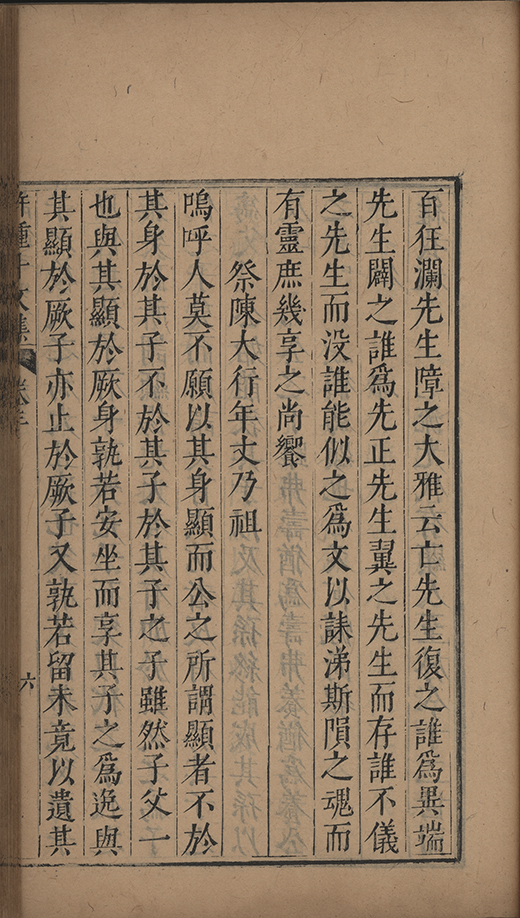 百狂瀾先生障之大雅云亡先生復之誰為異端
先生闢之誰為先正先生翼之先生而存誰不儀
之先生而没誰能似之為文以誄涕斯隕之魂而
有靈庶幾享之尚饗
祭陳大行年丈乃祖
嗚呼人莫不願以其身顯而公之所謂顯者不於
其身於其子不於其子於其子之子雖然子父一
也與其顯於厥身孰若安坐而享其子之為逸與
其顯於厥子亦止於厥子又孰若留未竟以遺其
許鍾斗文集 卷三 六